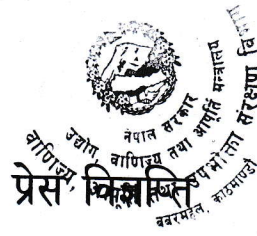 नेपाल सरकार
उद्योग, वाणिज्य तथा आपूर्ति मन्त्रालय
वाणिज्य, उपभोक्ता संरक्षण
बबरमहल, काठमाण्डौ
प्रेस विज्ञप्ति